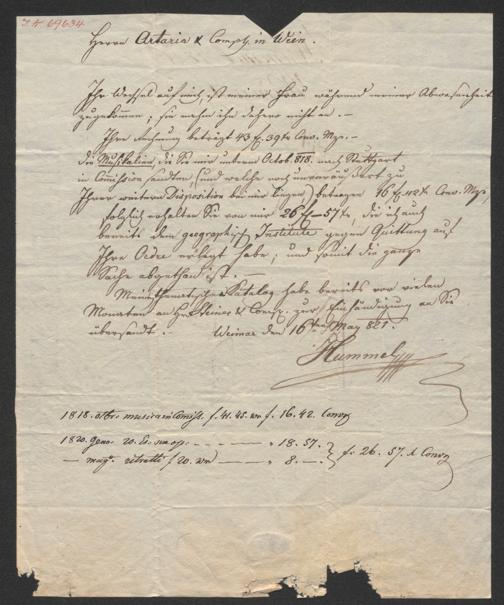 I.N. 69634
Herrn Artaria & Comp. in Wien.
Ihr Wechsel auf mich, ist meiner Frau während meiner Abwesenheit
zugekommen; sie nahm ihn daher nicht an. –
Ihre Rechnung beträgt 43 f. 39 kr Conv. Mze. –
die Musikalien, die Sie mir unterm Octob. 818. nach Stuttgart
in Commission sandten, (und welche noch unverändert zu
Ihrer weitern Disposition bei mir liegen) betragen 16 f 42 kr Conv. Mze,
folglich erhalten Sie von mir 26 f – 57 kr, die ich auch
bereits dem geographisch. Institute gegen Quittung auf
Ihre Ordre erlegt habe; und somit die ganze
Sache abgethan ist. –
Meinen thematischen Katalog habe bereits vor vielen
Monaten an Hr. Steiner & Comp. zur Einhändigung an Sie
übersandt. – Weimar den 16ten May 821.
Hummel
1818. 8tbr. musica in Comiss. f. 41. 45. wr f. 16. 42. Convz
1820. geno. 20. di suo - - - - " 18. 57.
— mago. ritratti f 20. wr — " 8. — } f. 26. 57. x Convz